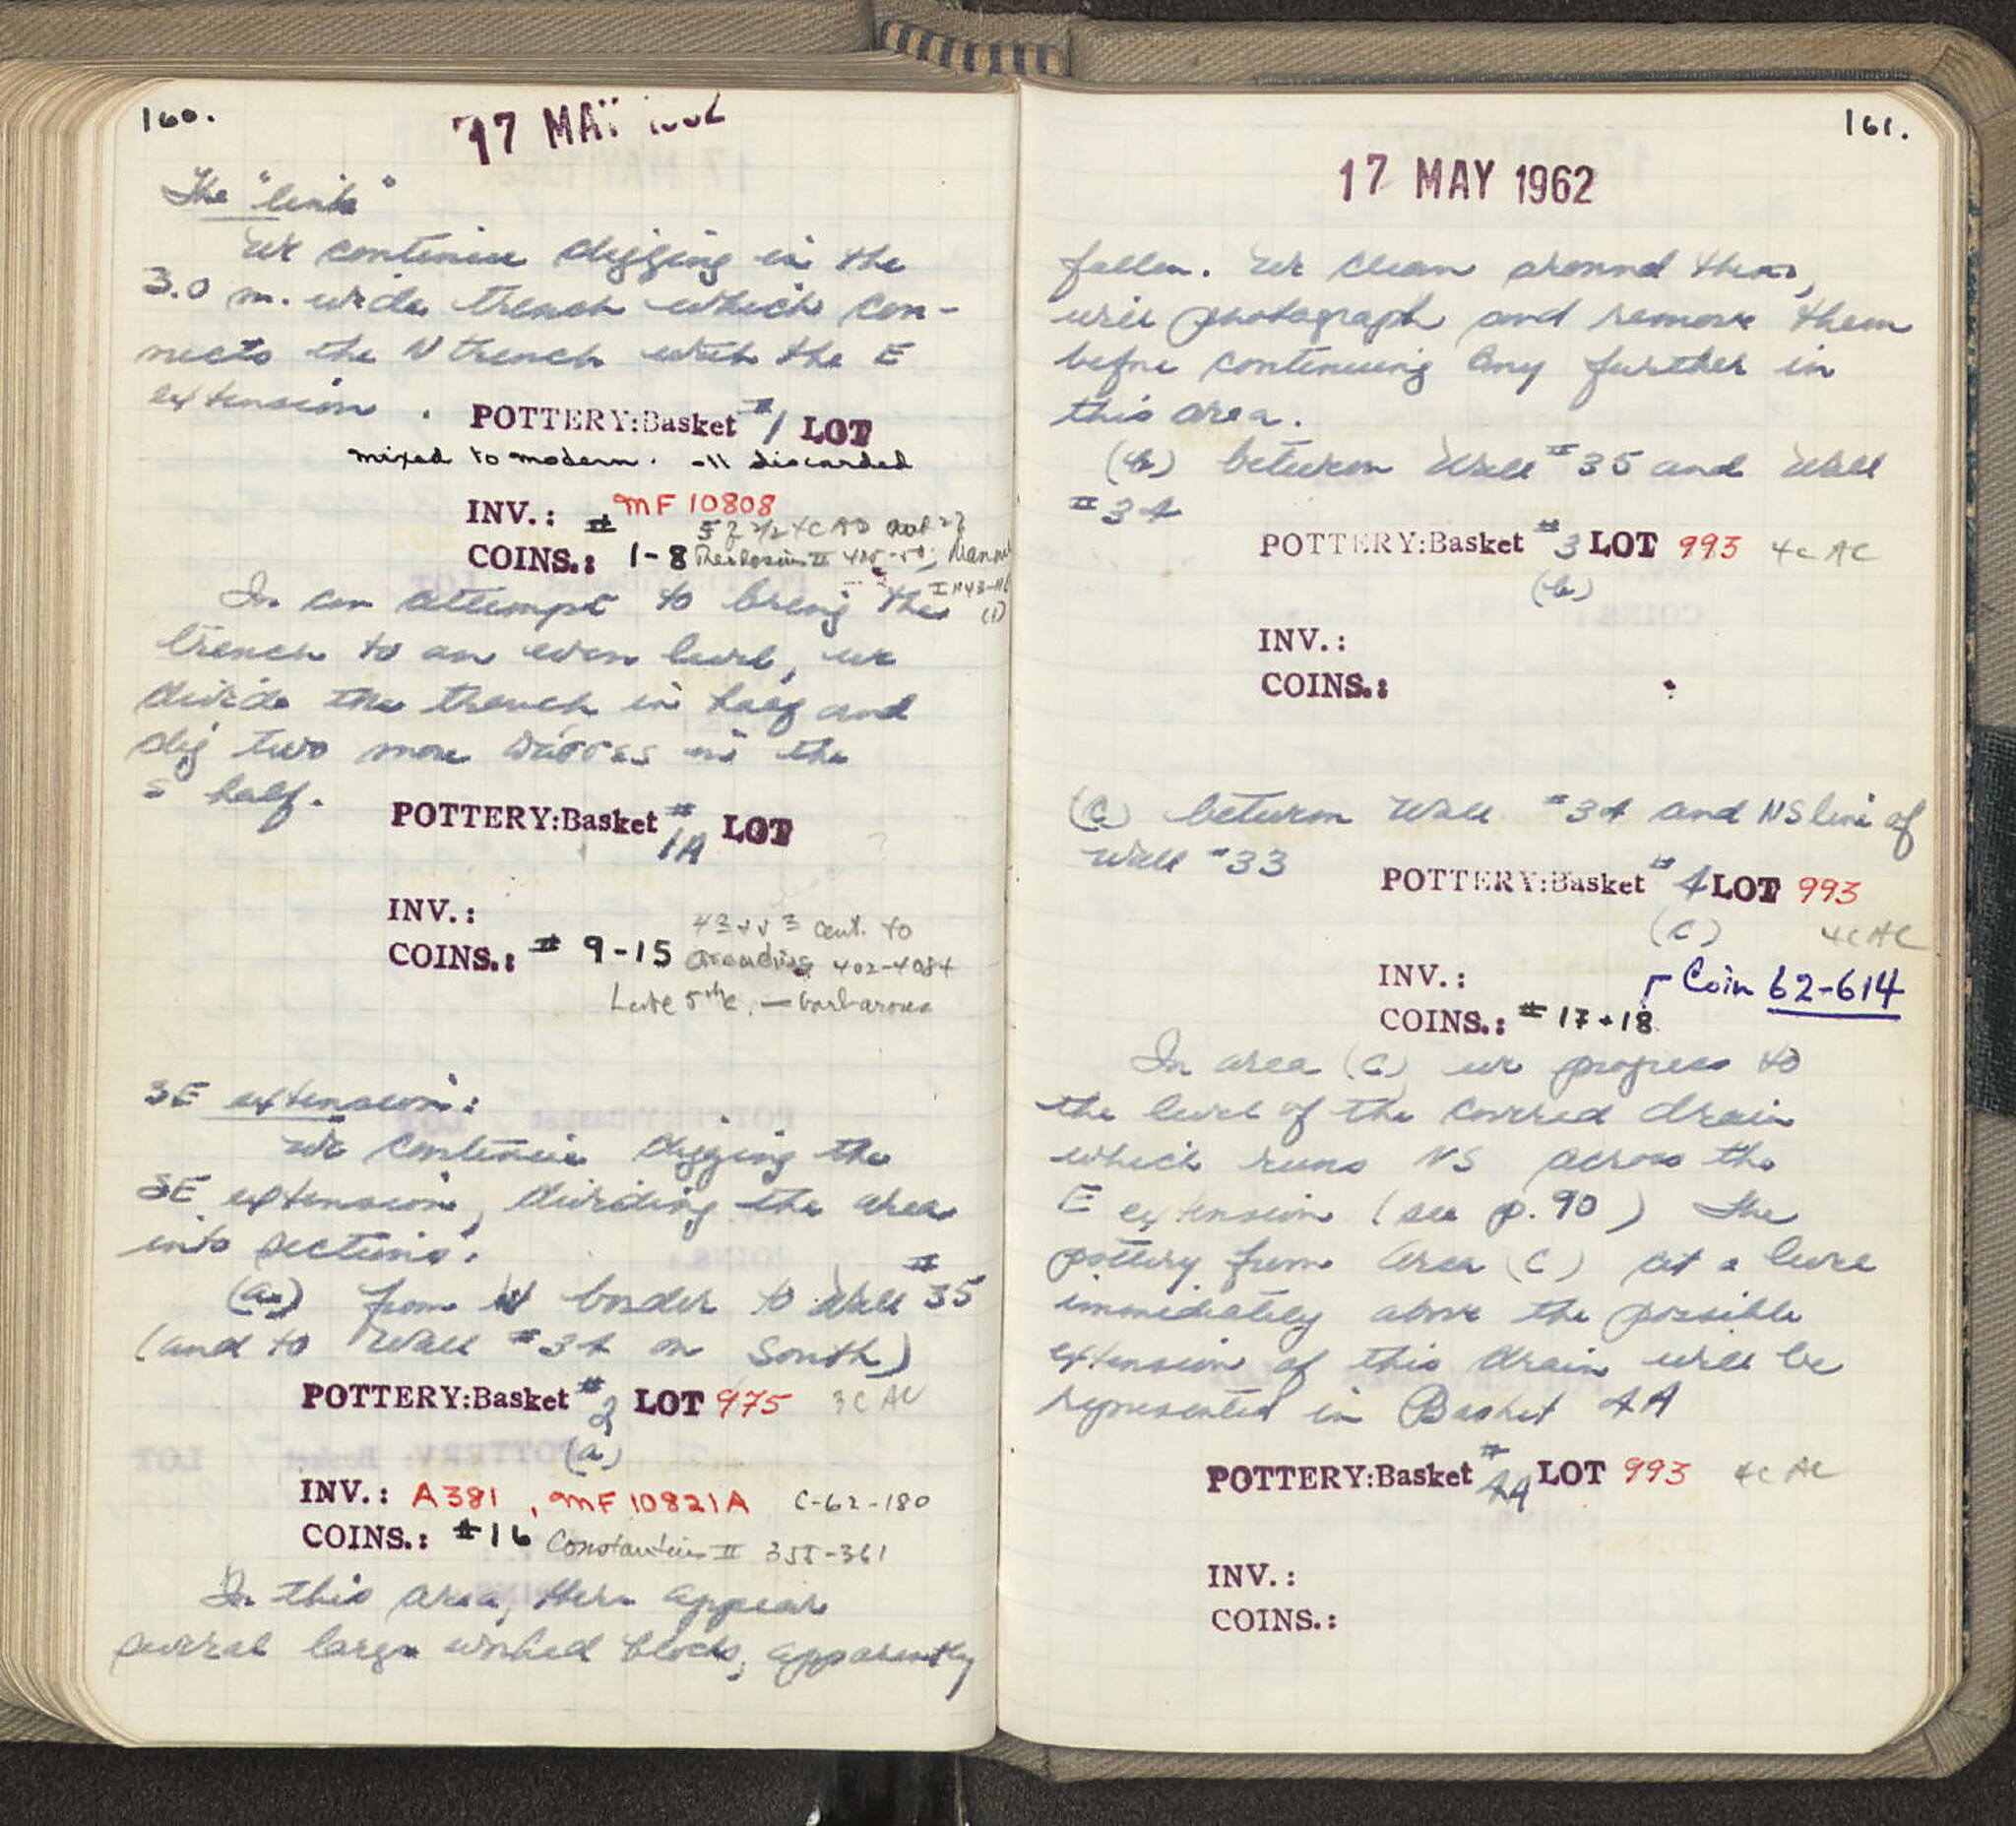 160.
17 MAY 1962
The "link"
We continue digging in the
3.0 m. wide trench which con-
nects the N trench with the E
extension.
POTTERY:Basket #1 LOT
mixed to modern. all discarded
INV.: MF 10808
COINS.: # 1-8 Theodosius II 425-50; Manuel
I 1143-
(1)
In an attempt to bring the
trench to an even level, we
divide the trench in half and
dig two more passes in the
S half.
POTTERY:Basket #1A LOT
INV.:
COINS.: # 9-15 Arcadius 402-408
Late 5th c. — barbarous
SE extension:
We continue digging the
SE extension, dividing the area
into sections.
(a) from W border to Wall #35
(and to Wall #34 on South)
POTTERY:Basket #2 LOT 975 3C AC
(a)
INV.: A381, MF 10821A C-62-180
COINS.: #16 Constantius II 355-361
In this area, there appear
several large worked blocks, apparently
161.
17 MAY 1962
fallen. We clean around them,
will photograph and remove them
before continuing any further in
this area.
(b) between Wall #35 and Wall
#34
POTTERY:Basket #3 LOT 993 4c AC
(b)
INV.:
COINS.:
(c) between Wall #34 and NS line of
Wall #33
POTTERY:Basket #4 LOT 993
(c) 4c AC
INV.: Coin 62-614
COINS.: # 17+18
In area (c) we progress to
the level of the covered drain
which runs NS across the
E extension (see p. 90) The
pottery from Area (c) at a level
immediately above the possible
extension of this drain will be
represented in Basket 4A
POTTERY:Basket #4A LOT 993 4c AC
INV.:
COINS.: